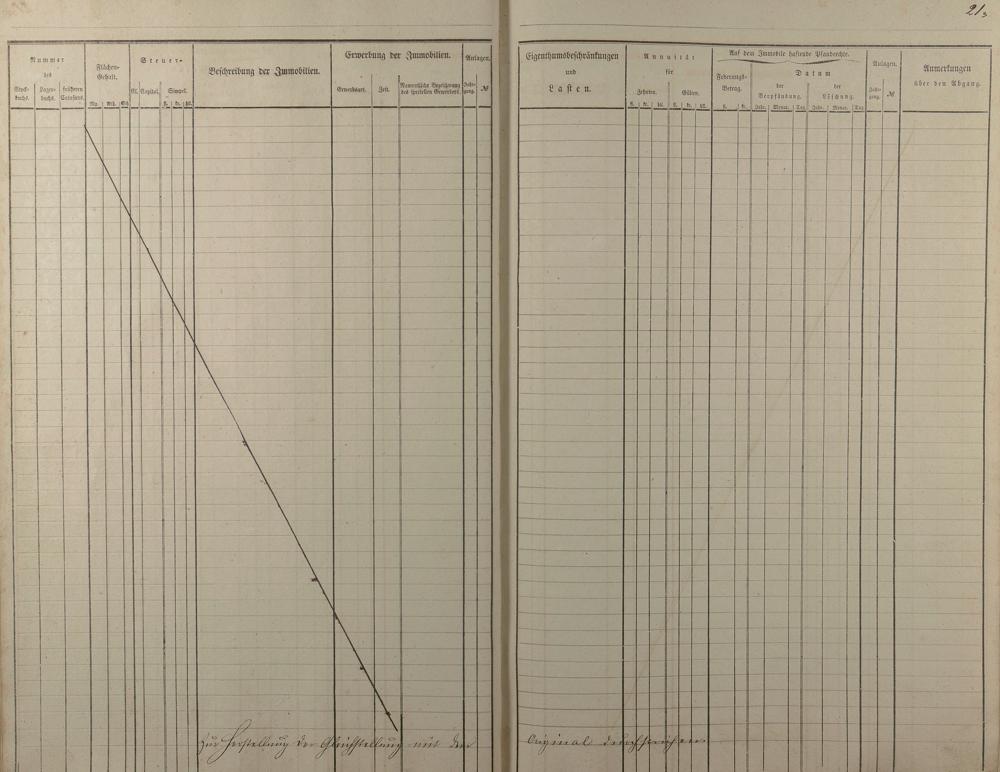 21
Nummer
des
Stock-
buchs.
Lager-
buchs.
früheren
Catasters.
Flächen-
Gehalt.
Mg.
Rth.
Sch.
Steuer-
Cl.
Capital.
Simpel.
fl.
kr.
hl.
Beschreibung der Immobilien.
Erwerbung der Immobilien.
Erwerbsart.
Zeit.
Namentliche Bezeichnung
des speciellen Erwerbers.
Anlagen.
Jahr-
gang.
№
Eigenthumsbeschränkungen
und
Lasten.
Annuität
für
Zehnten.
fl.
kr.
hl.
Gülten.
fl.
kr.
hl.
Auf dem Immobile haftende Pfandrechte.
Forderungs-
Betrag.
fl.
kr.
Datum
der
Verpfändung.
Jahr.
Monat.
Tag.
der
Löschung.
Jahr.
Monat.
Tag.
Anlagen.
Jahr-
gang.
№
Anmerkungen
über den Abgang.
zur Herstellung der Gleichstellung mit dem Original durchstrichen